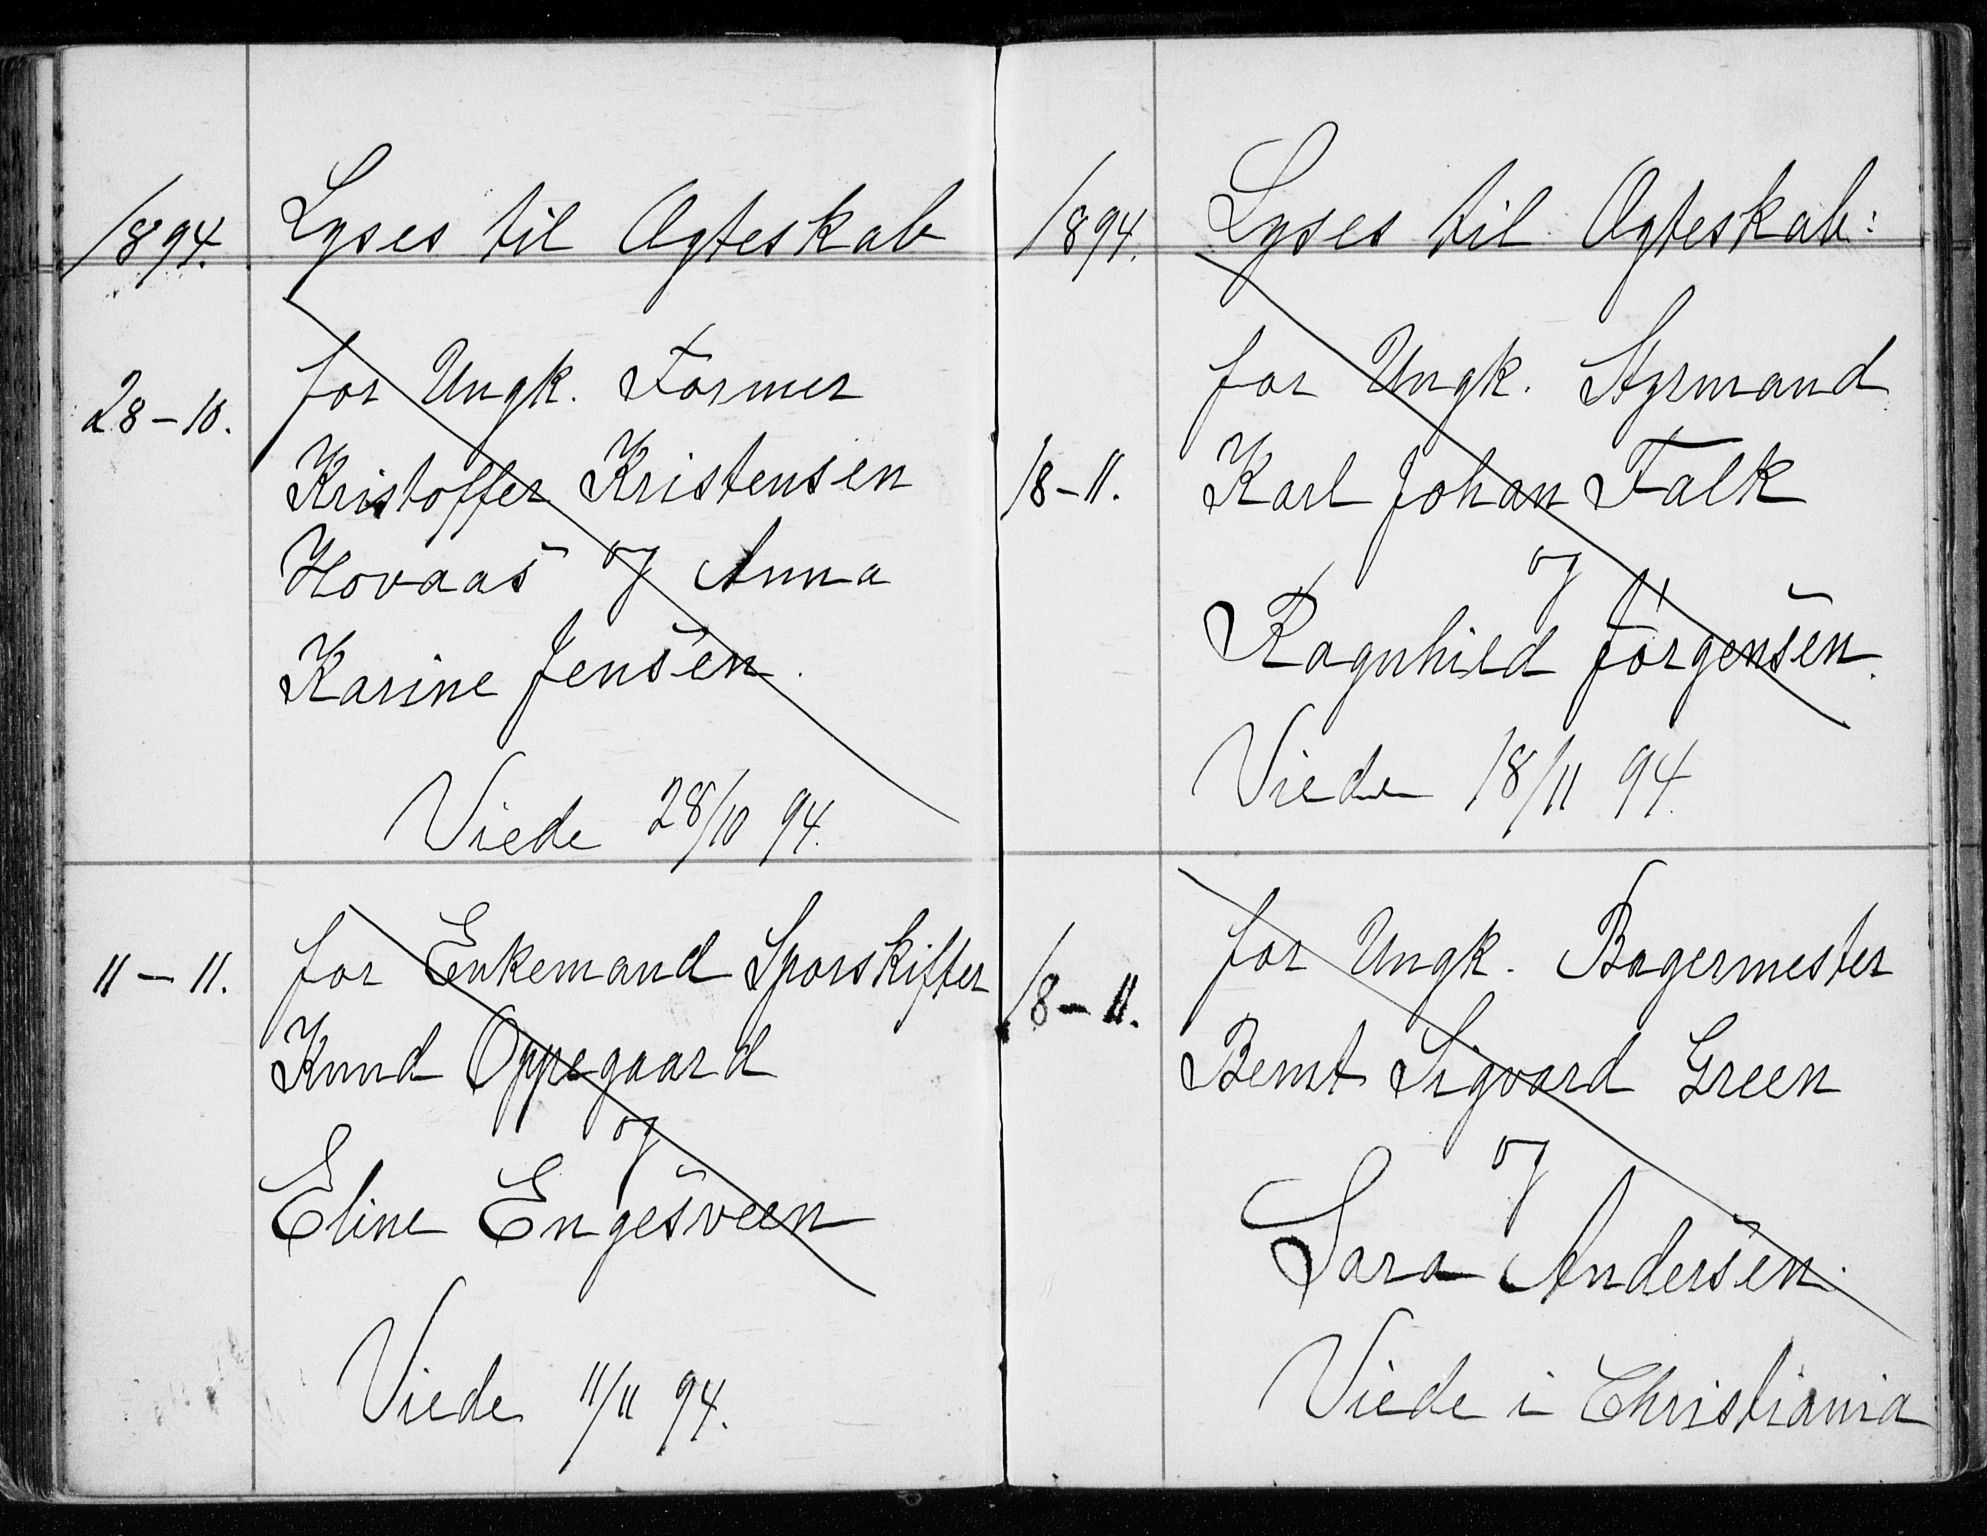 1894. Lyses til Ægteskab
28-10. for Ungk. Former
Kristoffer Kristensen
Hovaas og Anna
Karine Jensen.
Viede 28/10 94.
11-11. for Enkemand Sporskifter
Knud Oppegaard
og
Eline Engesveen
Viede 11/11 94.
1894. Lyses til Ægteskab:
for Ungk. Styrmand
18-11. Karl Johan Falk
og
Ragnhild Jörgensen.
Viede 18/11 94.
for Ungk. Bagermester
18-11. Bernt Sigvard Green
og
Sara Andersen.
Viede i Christiania